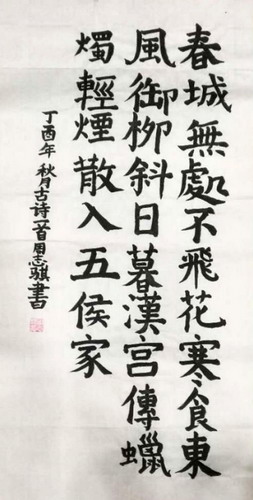 春城無處不飛花寒食東
風御柳斜日暮漢宮傳蠟
燭輕煙散入五侯家
丁酉年秋月古诗一首周志骐書